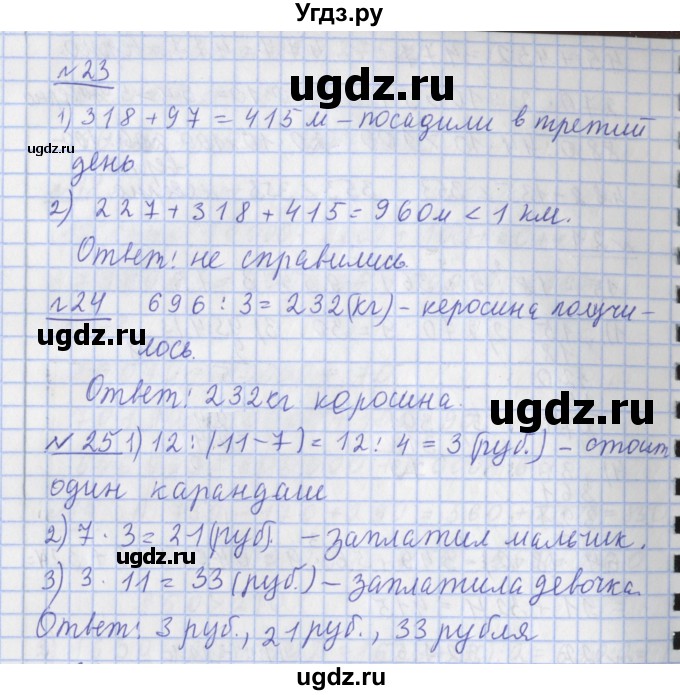 Угдз.ру
№23
ugdz.ru
1) 318 + 97 = 415 м – посадили в третий
ugdz.ru
день
2) 227 + 318 + 415 = 960м < 1 км.
Ответ: не справились.
№24 696 : 3 = 232(кг) – керосина получи-
ugdz.ru
лось.
ugdz.ru
Ответ: 232кг керосина.
№ 25 1) 12 : (11-7) = 12 : 4 = 3 (руб.) – стоит
один карандаш
2) 7 · 3 = 21(руб). – заплатил мальчик.
ugdz.ru
3) 3 · 11 = 33 (руб.) – заплатила девочка.
Ответ: 3 руб., 21 руб., 33 рубля
ugdz.ru
ugdz.ru